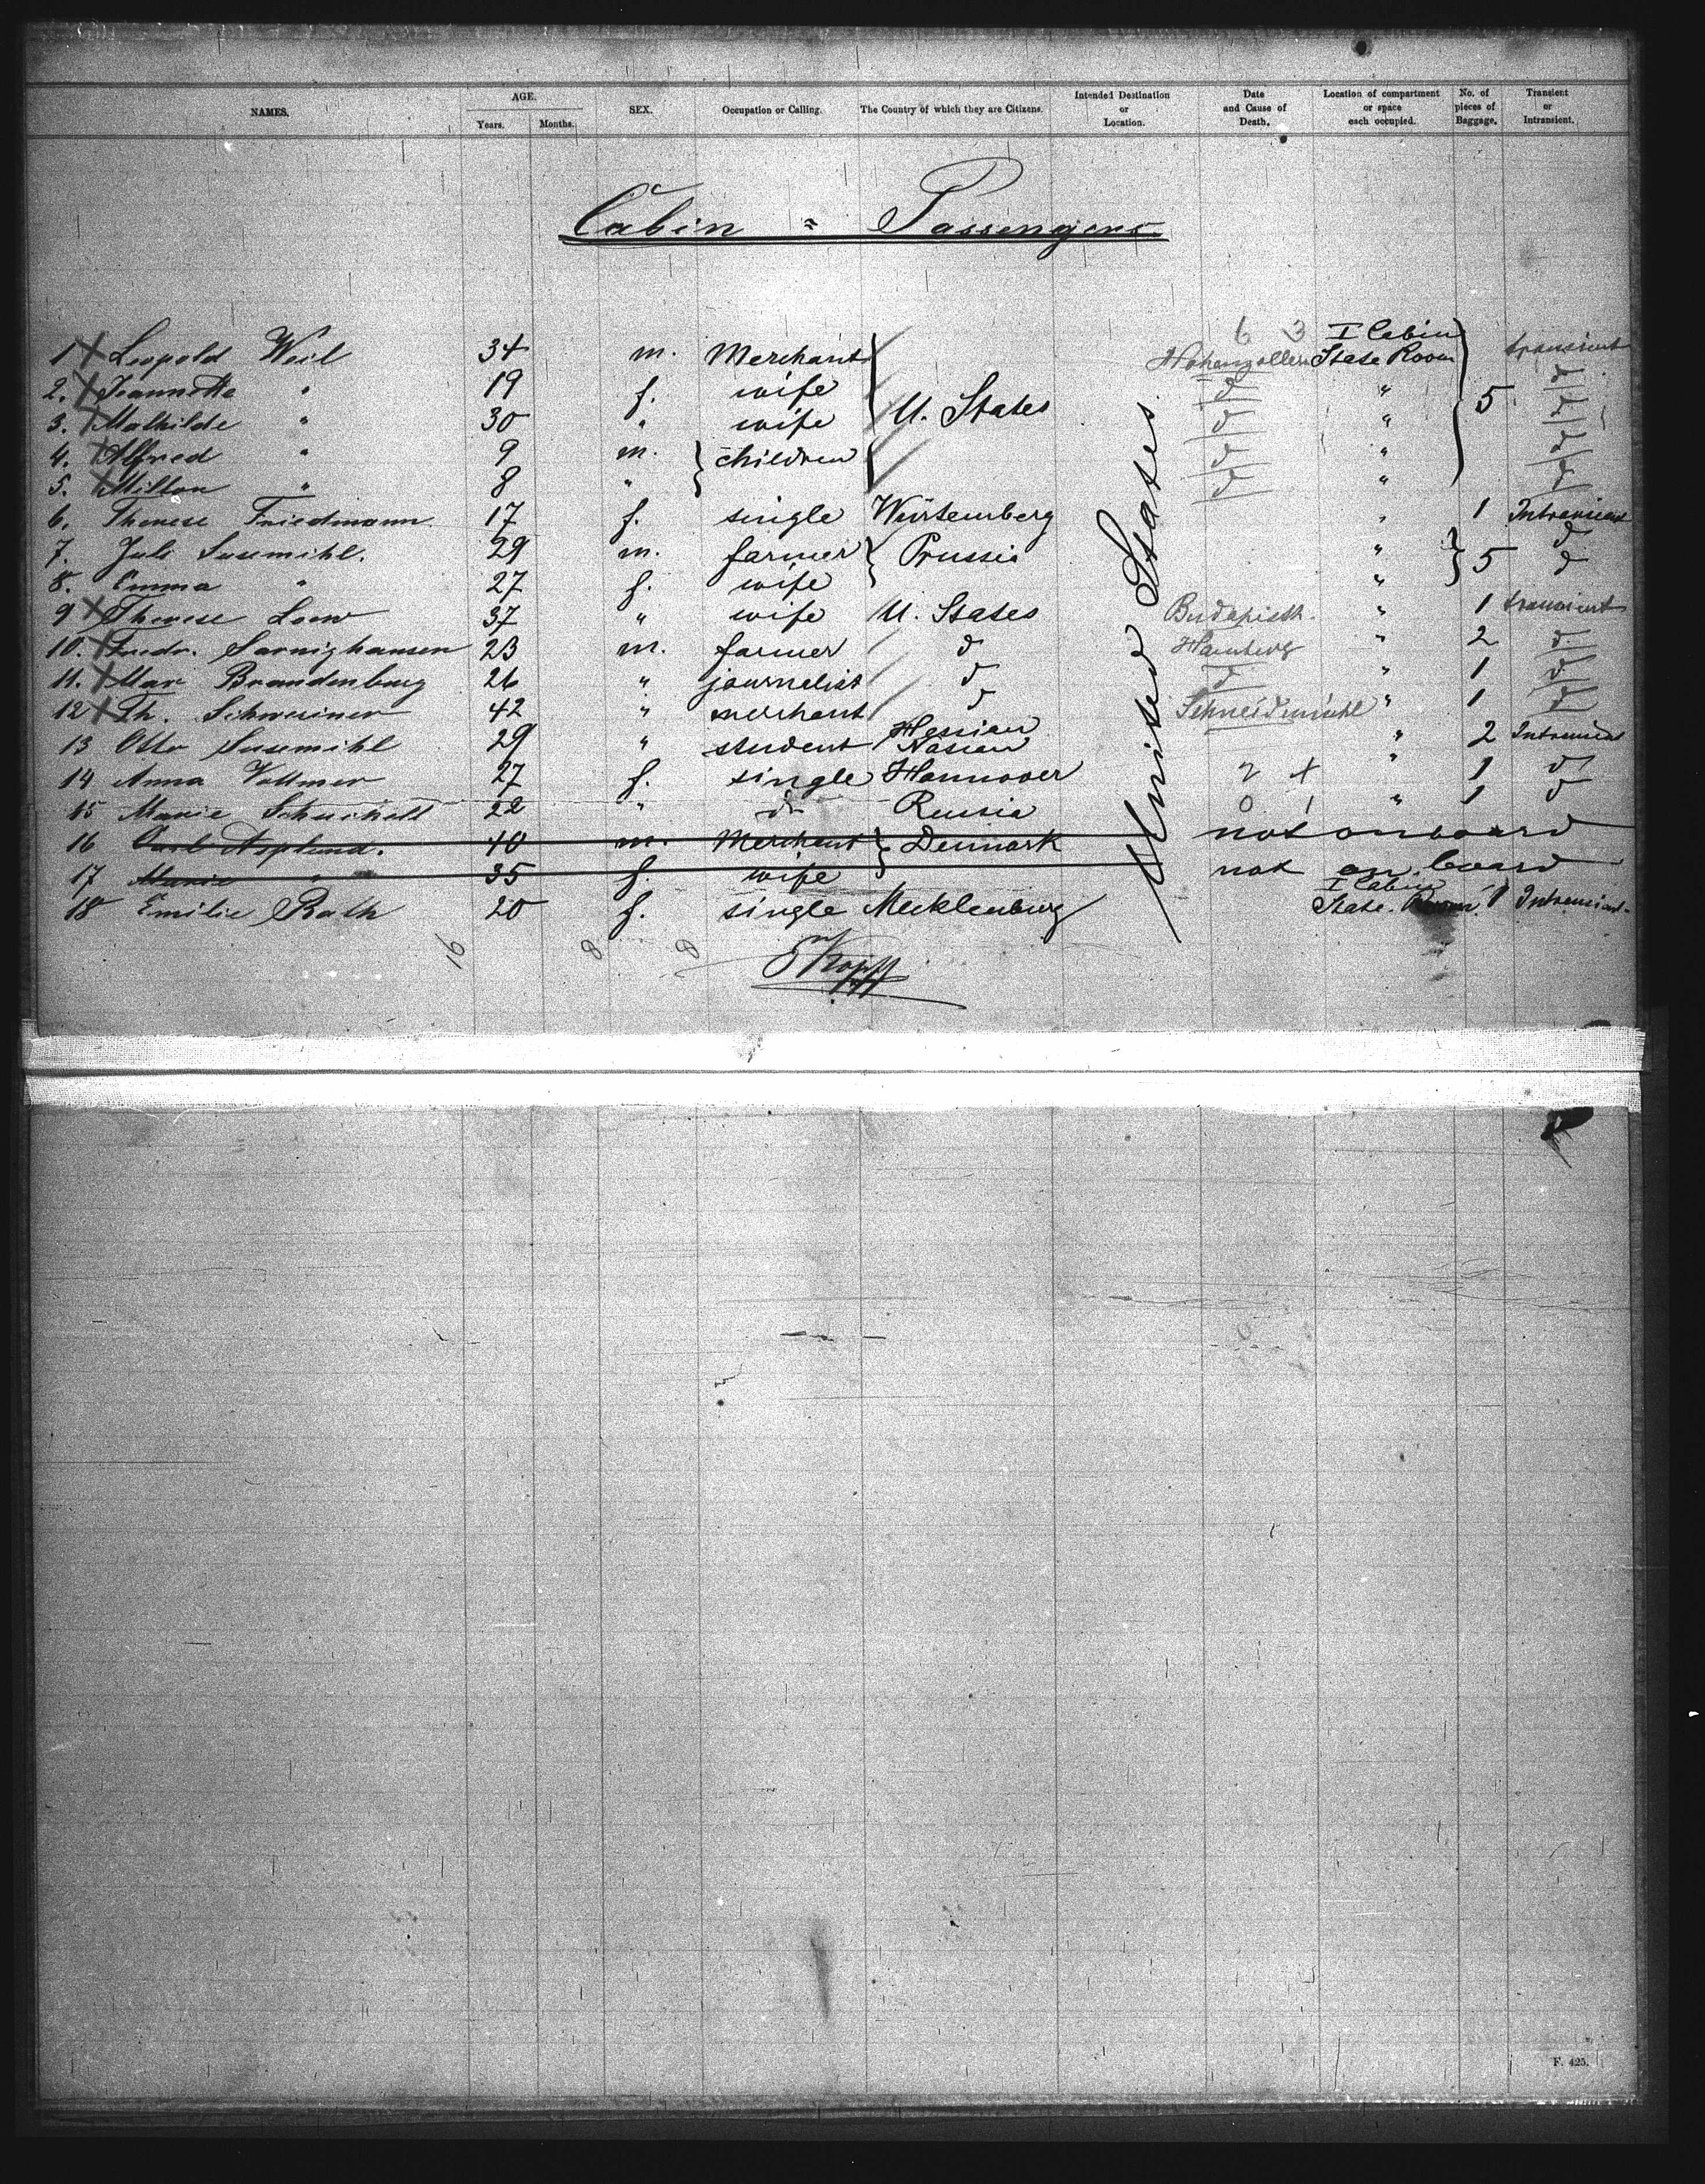 NAMES. AGE. Years. Months. SEX. Occupation or Calling. The Country of which they are Citizens. Intended Destination or Location. Date and Cause of Death. Location of compartment or space each occupied. No. of pieces of Baggage. Transient or Intransient.
Cabin = Passengers
6 3 I Cabin
1 X Leopold Weil 34 m. Merchant Hohenzollern State Room transient
2. X Jeannette " 19 f. wife d " d
3. X Mathilde " 30 " wife U. States d " 5 d
4. X Alfred " 9 m. children d " d
5. X Milton " 8 " d " d
6. Therese Friedmann 17 f. single Würtemberg " 1 Intransient
7. Juls Susemihl. 29 m. farmer Prussia " 5 d
8. Emma " 27 f. wife " d
9 X Therese Loew 37 " wife U. States Budapesth. " 1 transient
10. X Friedr. Sarnighausen 23 m. farmer d Hamburg " 2 d
11. X Max Brandenburg 26 " journalist d d " 1 d
12 X Th. Schweriner 42 " merchant d Schneidemühl " 1 d
13 Otto Susemihl 29 " student Hessian Nassau " 2 Intransient
14 Anna Vollmer 27 f. single Hannover 2 X " 1 d
15 Marie Schuchelt 22 " do Russia 0 1 " 1 d
16 Carl 40 m. Merchant Denmark not on board
17 Marie " 35 f. wife not on board
18 Emilie Rath 20 f. single Mecklenburg I Cabin State Room 1 Intransient
United States
16 8 8
Kopff
F. 425.